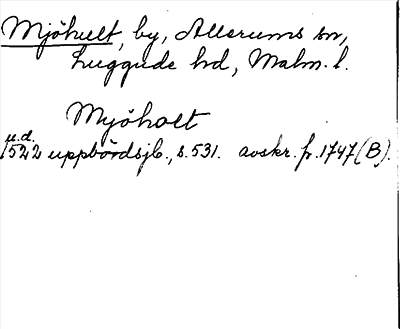 Mjöhult, by, Allerums sn,
Luggude hd, Malm. l.
Mjöholt
u.d.
1522 uppbördsjb., s. 531. avskr. fr. 1747 (B).